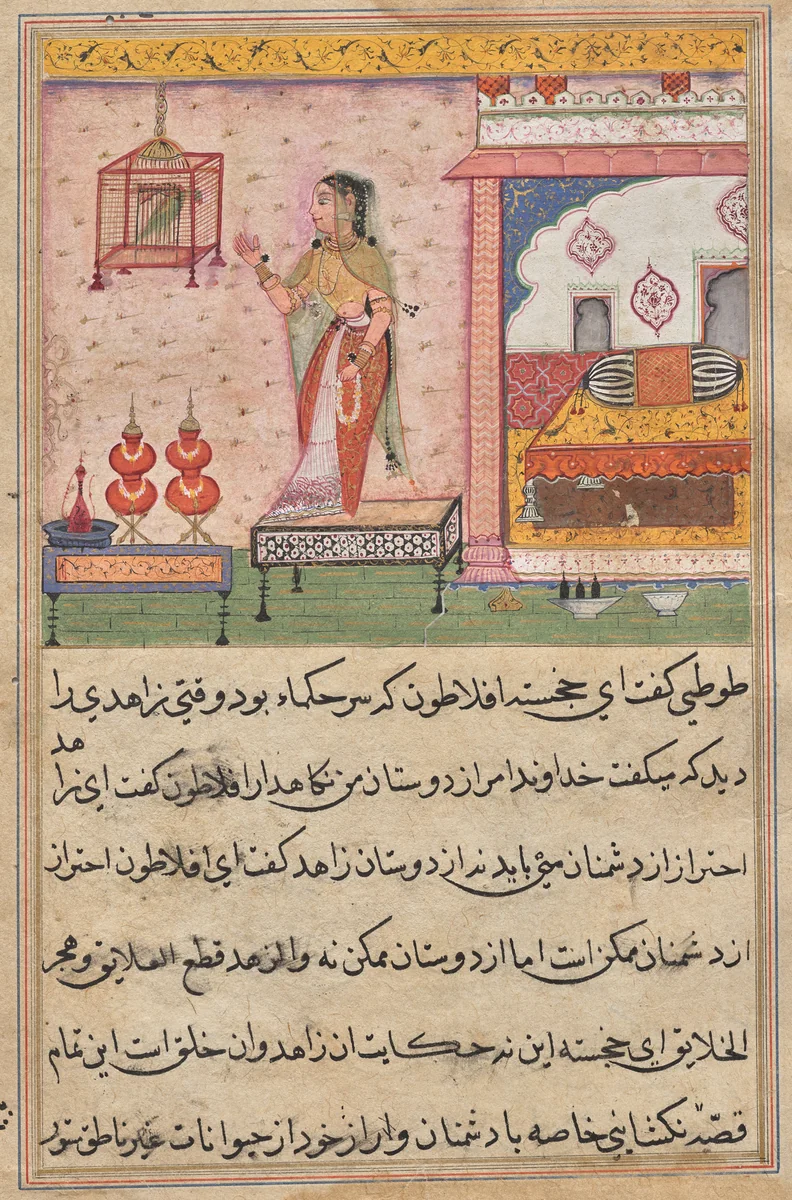 طوطی گفت ای خجسته افلاطون که سر حکماء بود وقتی زاهدی را
دید که میگفت خداوندا مرا از دوستان من نگاهدار افلاطون گفت ای زاهد
احتراز از دشمنان می باید نه از دوستان زاهد گفت ای افلاطون احتراز
از دشمنان ممکن است اما از دوستان ممکن نه والزهد قطع العلایق وهجر
الخلایق ای خجسته این نه حکایت ان زاهد وان خلق است این تمام
قصه نکشایی خاصه با دشمنان و راز خود از حیوانات غیر ناطق